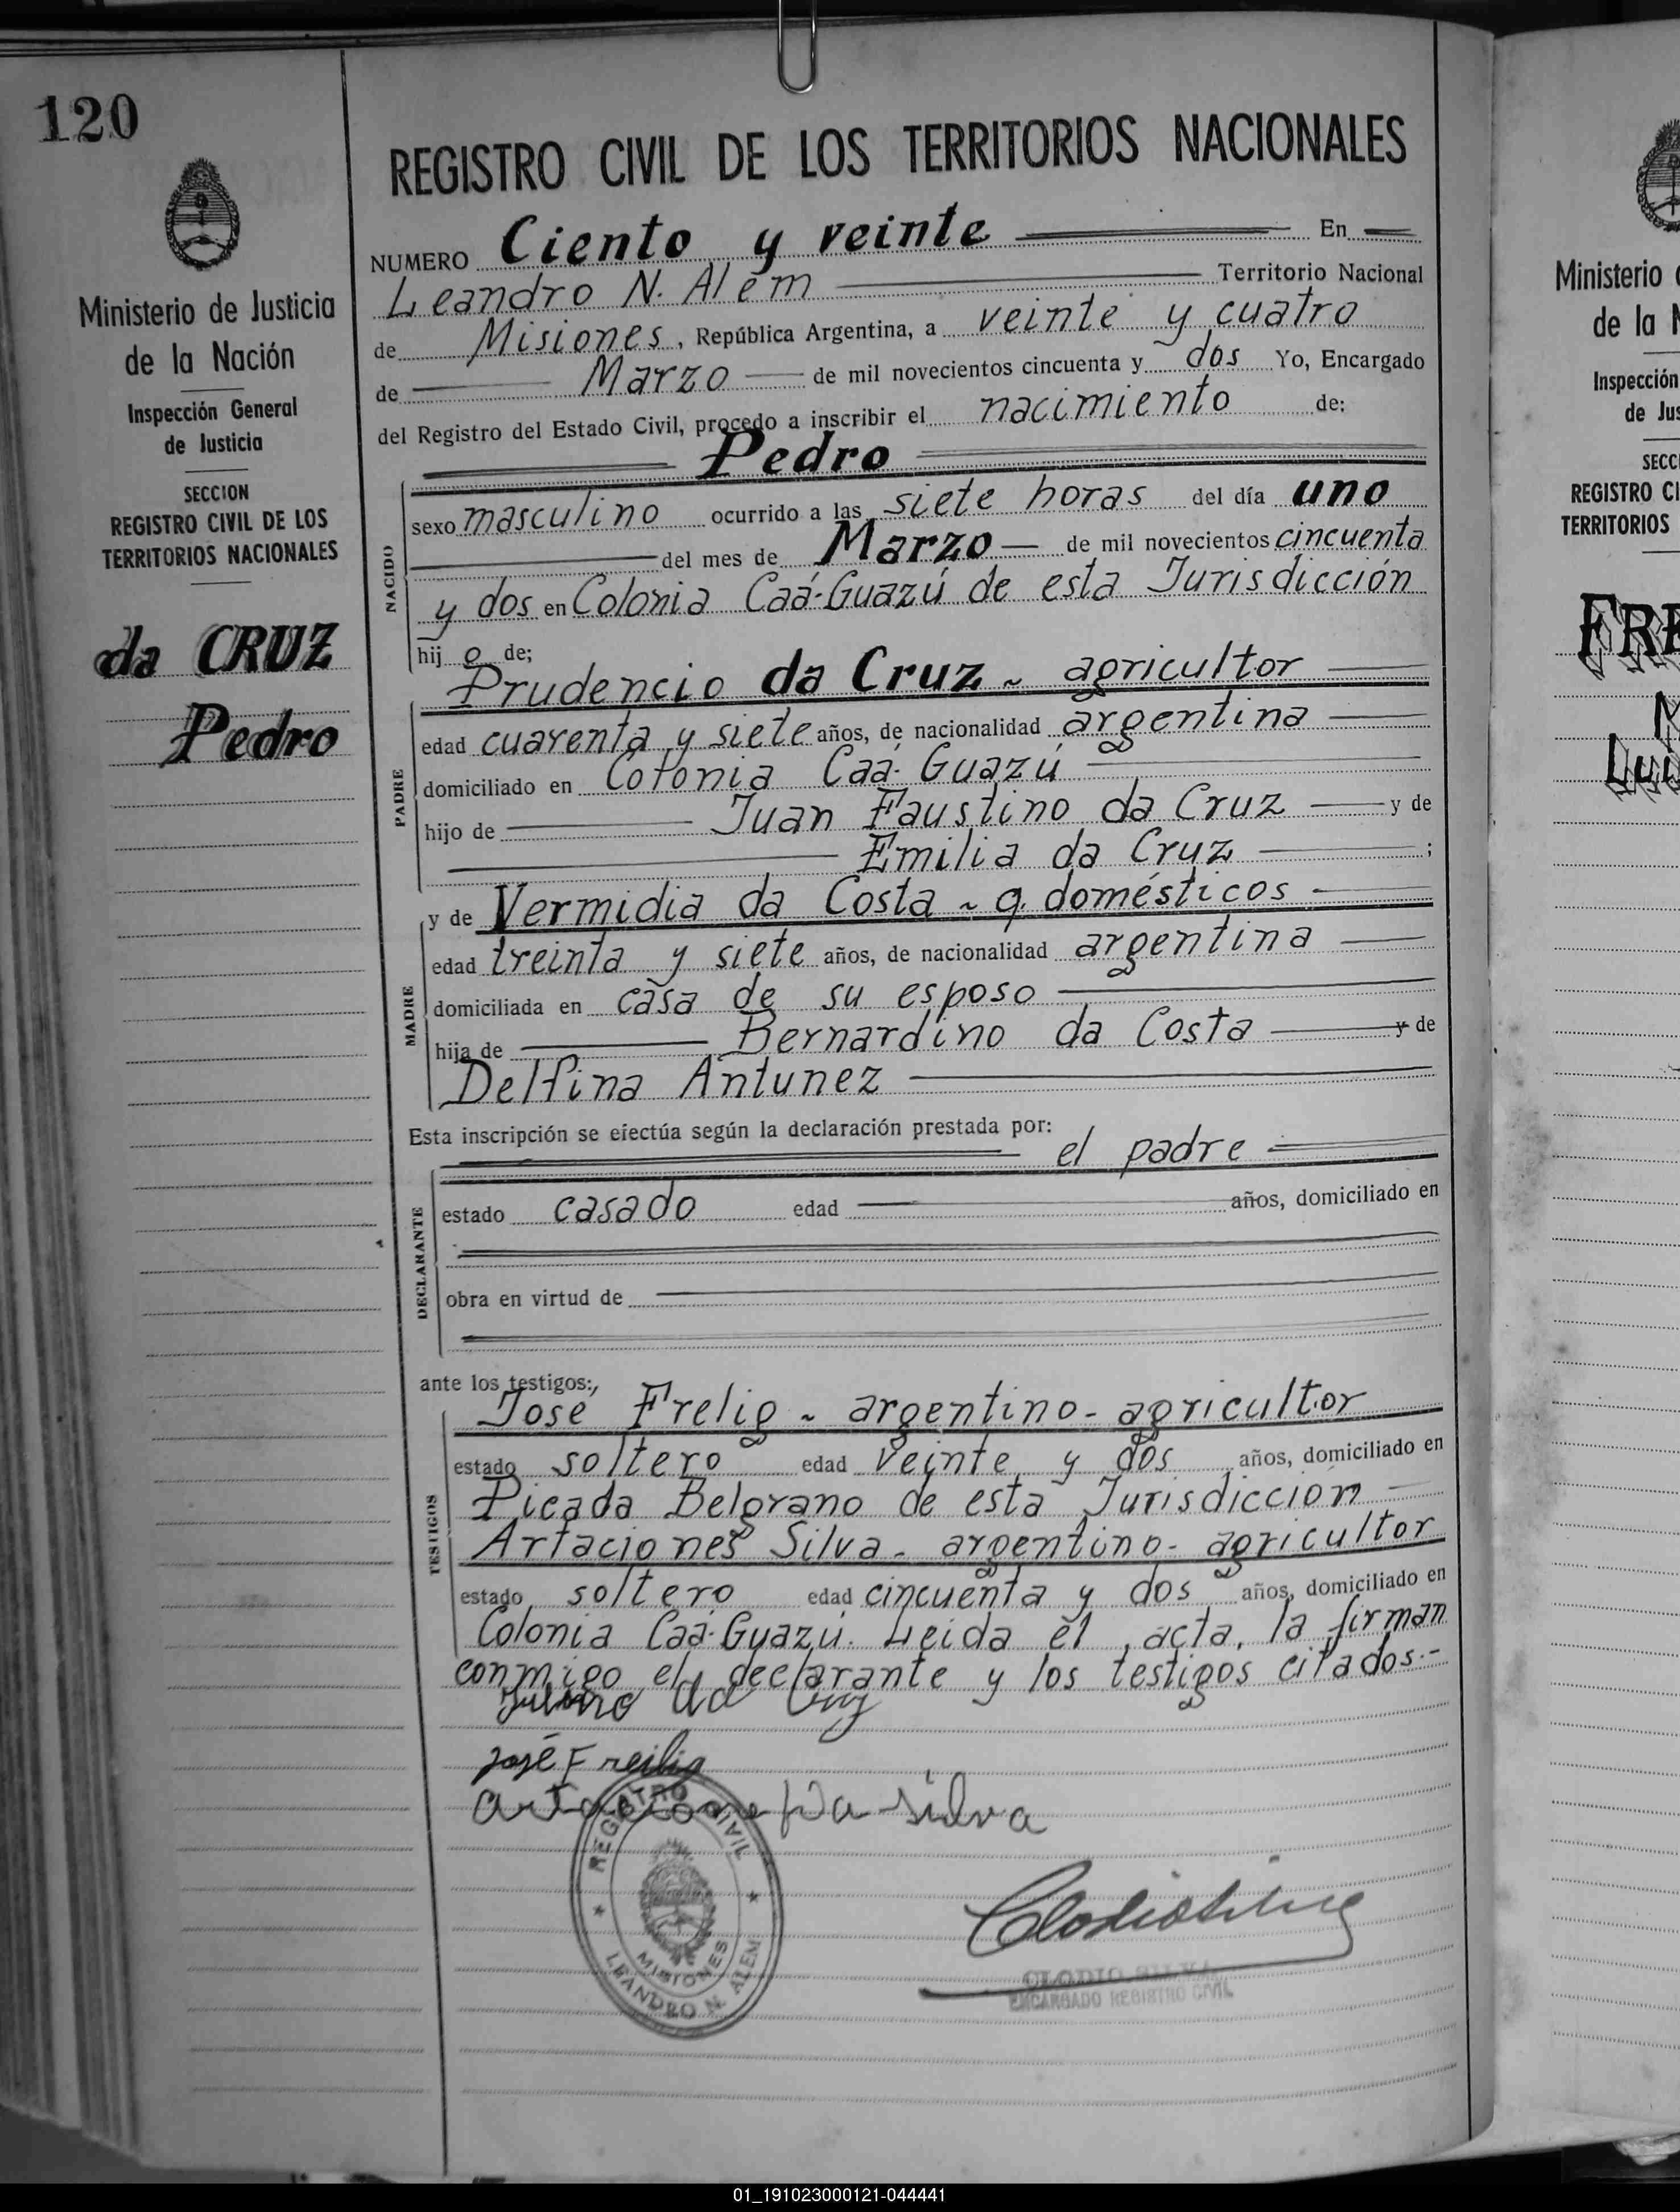 120
Ministerio de Justicia
de la Nación
Inspección General
de Justicia
SECCION
REGISTRO CIVIL DE LOS
TERRITORIOS NACIONALES
da CRUZ
Pedro
REGISTRO CIVIL DE LOS TERRITORIOS NACIONALES
NUMERO Ciento y veinte En
Leandro N. Alem Territorio Nacional
de Misiones, República Argentina, a veinte y cuatro
de Marzo de mil novecientos cincuenta y dos Yo, Encargado
del Registro del Estado Civil, procedo a inscribir el nacimiento de:
Pedro
NACIDO
sexo masculino ocurrido a las siete horas del día uno
del mes de Marzo de mil novecientos cincuenta
y dos en Colonia Caá-Guazú de esta Jurisdicción
hij o de;
Prudencio da Cruz - agricultor
PADRE
edad cuarenta y siete años, de nacionalidad argentina
domiciliado en Colonia Caá-Guazú
hijo de Juan Faustino da Cruz y de
Emilia da Cruz ;
y de Vermidia da Costa - q. domésticos
MADRE
edad treinta y siete años, de nacionalidad argentina
domiciliada en casa de su esposo
hija de Bernardino da Costa y de
Delfina Antunez
Esta inscripción se efectúa según la declaración prestada por:
el padre
DECLARANTE
estado casado edad años, domiciliado en
obra en virtud de
ante los testigos:
José Frelig - argentino - agricultor
TESTIGOS
estado soltero edad veinte y dos años, domiciliado en
Picada Belgrano de esta Jurisdicción
Artaciones Silva - argentino - agricultor
estado soltero edad cincuenta y dos años, domiciliado en
Colonia Caá-Guazú. Leida el acta, la firman
conmigo el declarante y los testigos citados.-
da Cruz
José Freilig
da silva
REGISTRO CIVIL
MISIONES
LEANDRO N. ALEM
Clodio Silva
CLODIO SILVA
ENCARGADO REGISTRO CIVIL
Ministerio
de la
Inspección
de Jus
SECC
REGISTRO CI
TERRITORIOS
FRE
Lui
01_191023000121-044441